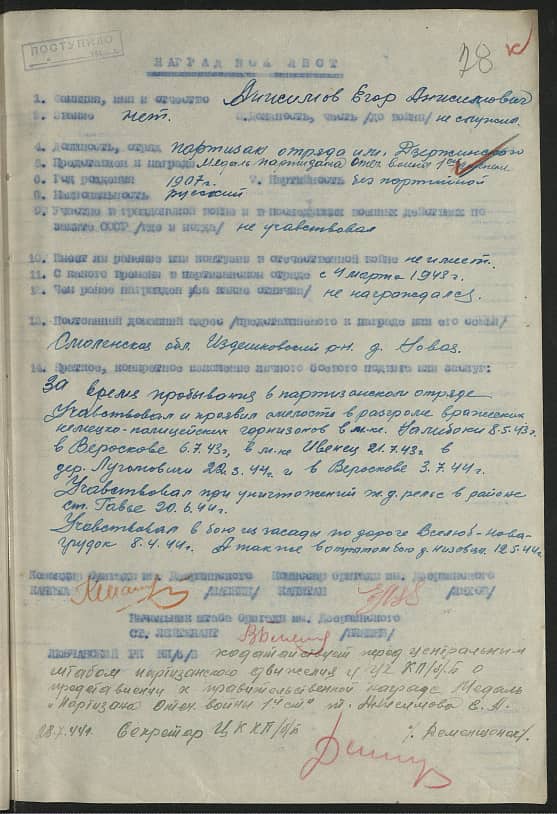 ПОСТУПИЛО
28
НАГРАДНОЙ ЛИСТ
1. Фамилия, имя и отчество Анисимов Егор Анисимович
2. Звание нет. 3. Должность, часть /до войны/ не служил.
4. Должность, отряд партизан отряда им. Дзержинского
5. Представлен к награде Медаль партизана Отеч. войны 1ой степени.
6. Год рождения 1907 г. 7. Партийность беспартийной
8. Национальность русский
9. Участие в гражданской войне и в последующих военных действиях по
защите СССР /где и когда/ не учавствовал
10. Имеет ли ранение или контузии в отечественной войне не имеет.
11. С какого времени в партизанском отряде с 4 марта 1943 г.
12. Чем ранее награжден /за какие отличия/ не награждался.
13. Постоянный домашний адрес /представляемого к награде или его семьи/
Смоленская обл. Издешковский р-н. д. Новая.
14. Краткое, конкретное изложение личного боевого подвига или заслуг:
За время пробывания в партизанском отряде
Учавствовал и проявил смелость в разгроме вражеских
немецко-полицейских гарнизонов в м-ке. Налибоки 8.5.43г.
в Вероскове 6.7.43г, в м-ке Ивенец 21.7.43г в
дер. Лугомовичи 22.3.44г. и в Вероскове 3.7.44г.
Учавствовал при уничтожений ж.д. рельс в районе
ст. Гавье 20.6.44г.
Учавствовал в бою из засады по дороге Вселюб-Нова-
грудок 8.4.44г. А так же в открытом бою д. Низовца 12.5.44г.
Командир бригады им. Дзержинского Комиссар бригады им. Дзержинского
КАПИТАН
Начальник штаба бригады им. Дзержинского
СТ. ЛЕЙТЕНАНТ
ЛЮБЧАНСКИЙ РК КП/б/Б ходатайствует перед центральным
штабом партизанского движения и ЦК КП/б/Б о
представлении к правительственной награде Медаль
"Партизана Отеч. войны 1ой ст" т. Анисимова Е.А.
28.7.44г. Секретарь